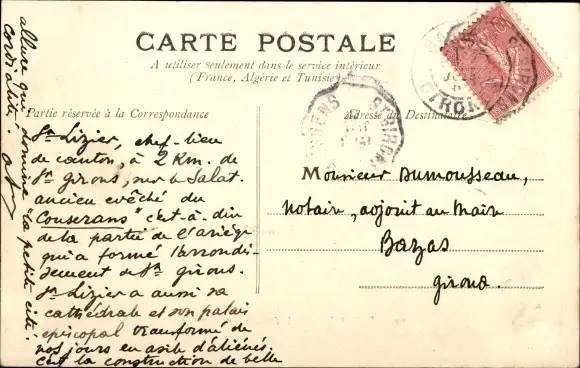 CARTE POSTALE
A utiliser seulement dans le service intérieur
(France, Algérie et Tunisie)
Partie réservée à la Correspondance
Adresse du Destinataire
St Lizier, chef-lieu
de canton, à 2 Km. de
St Girons, sur le Salat.
ancien evêché du
Couserans c'est-à-dire
de la partie de l'ariège
qui a formé l'arrondis-
sement de St girons.
St Lizier a aussi sa
cathédrale et son palais
episcopal transformé de
nos jours en asile d'aliénés.
c'est la construction de belle
allure qui domine "la petite cité.
Cordialité.
Monsieur Dumousseau,
notaire, adjoint au Maire
Bazas
Gironde.